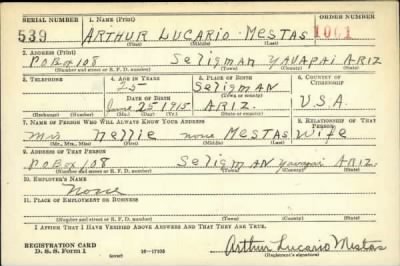 SERIAL NUMBER 1. NAME (Print) ORDER NUMBER
539 ARTHUR LUCARIO MESTAS 1001
(First) (Middle) (Last)
2. ADDRESS (Print)
P.O. Box 108 SELIGMAN YAVAPAI ARIZ
(Number and street or R. F. D. number) (Town) (County) (State)
3. TELEPHONE 4. AGE IN YEARS 5. PLACE OF BIRTH 6. COUNTRY OF CITIZENSHIP
25 SELIGMAN
DATE OF BIRTH (Town or county)
June 25 1915 ARIZ. U.S.A.
(Exchange) (Number) (Mo.) (Day) (Yr.) (State or country)
7. NAME OF PERSON WHO WILL ALWAYS KNOW YOUR ADDRESS 8. RELATIONSHIP OF THAT PERSON
Mrs Nellie none MESTAS Wife
(Mr., Mrs., Miss) (First) (Middle) (Last)
9. ADDRESS OF THAT PERSON
P.O. Box 108 SELIGMAN Yavapai ARIZ.
(Number and street or R. F. D. number) (Town) (County) (State)
10. EMPLOYER'S NAME
None
11. PLACE OF EMPLOYMENT OR BUSINESS
(Number and street or R. F. D. number) (Town) (County) (State)
I AFFIRM THAT I HAVE VERIFIED ABOVE ANSWERS AND THAT THEY ARE TRUE.
REGISTRATION CARD
D. S. S. Form 1 (over) 16—17105 Arthur Lucario Mestas
(Registrant's signature)